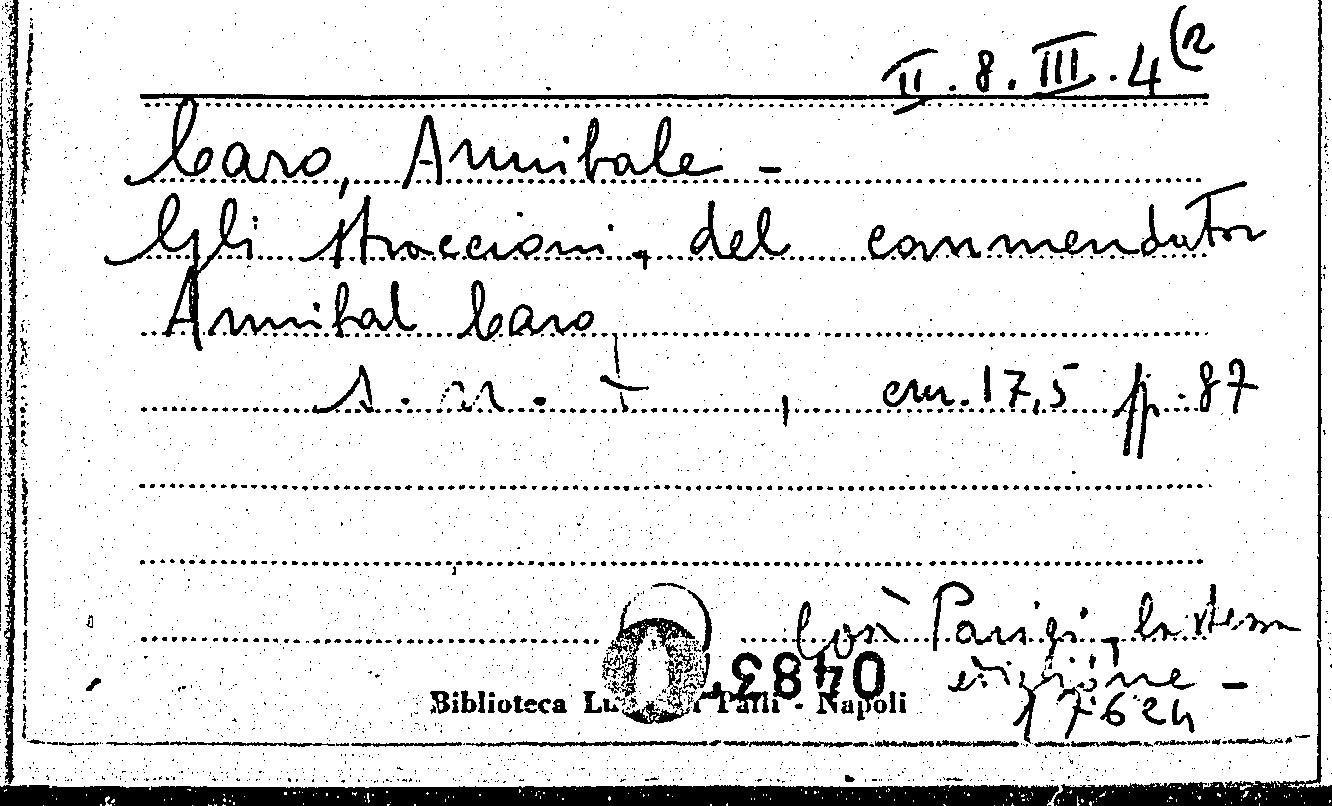 II.8.III.4(2
Caro, Annibale -
Gli straccioni, del commendator
Annibal Caro
s. n. t , cm. 17,5 pp. 87
Così Parigi, la stessa
edizione -
Biblioteca Lu i Palli - Napoli